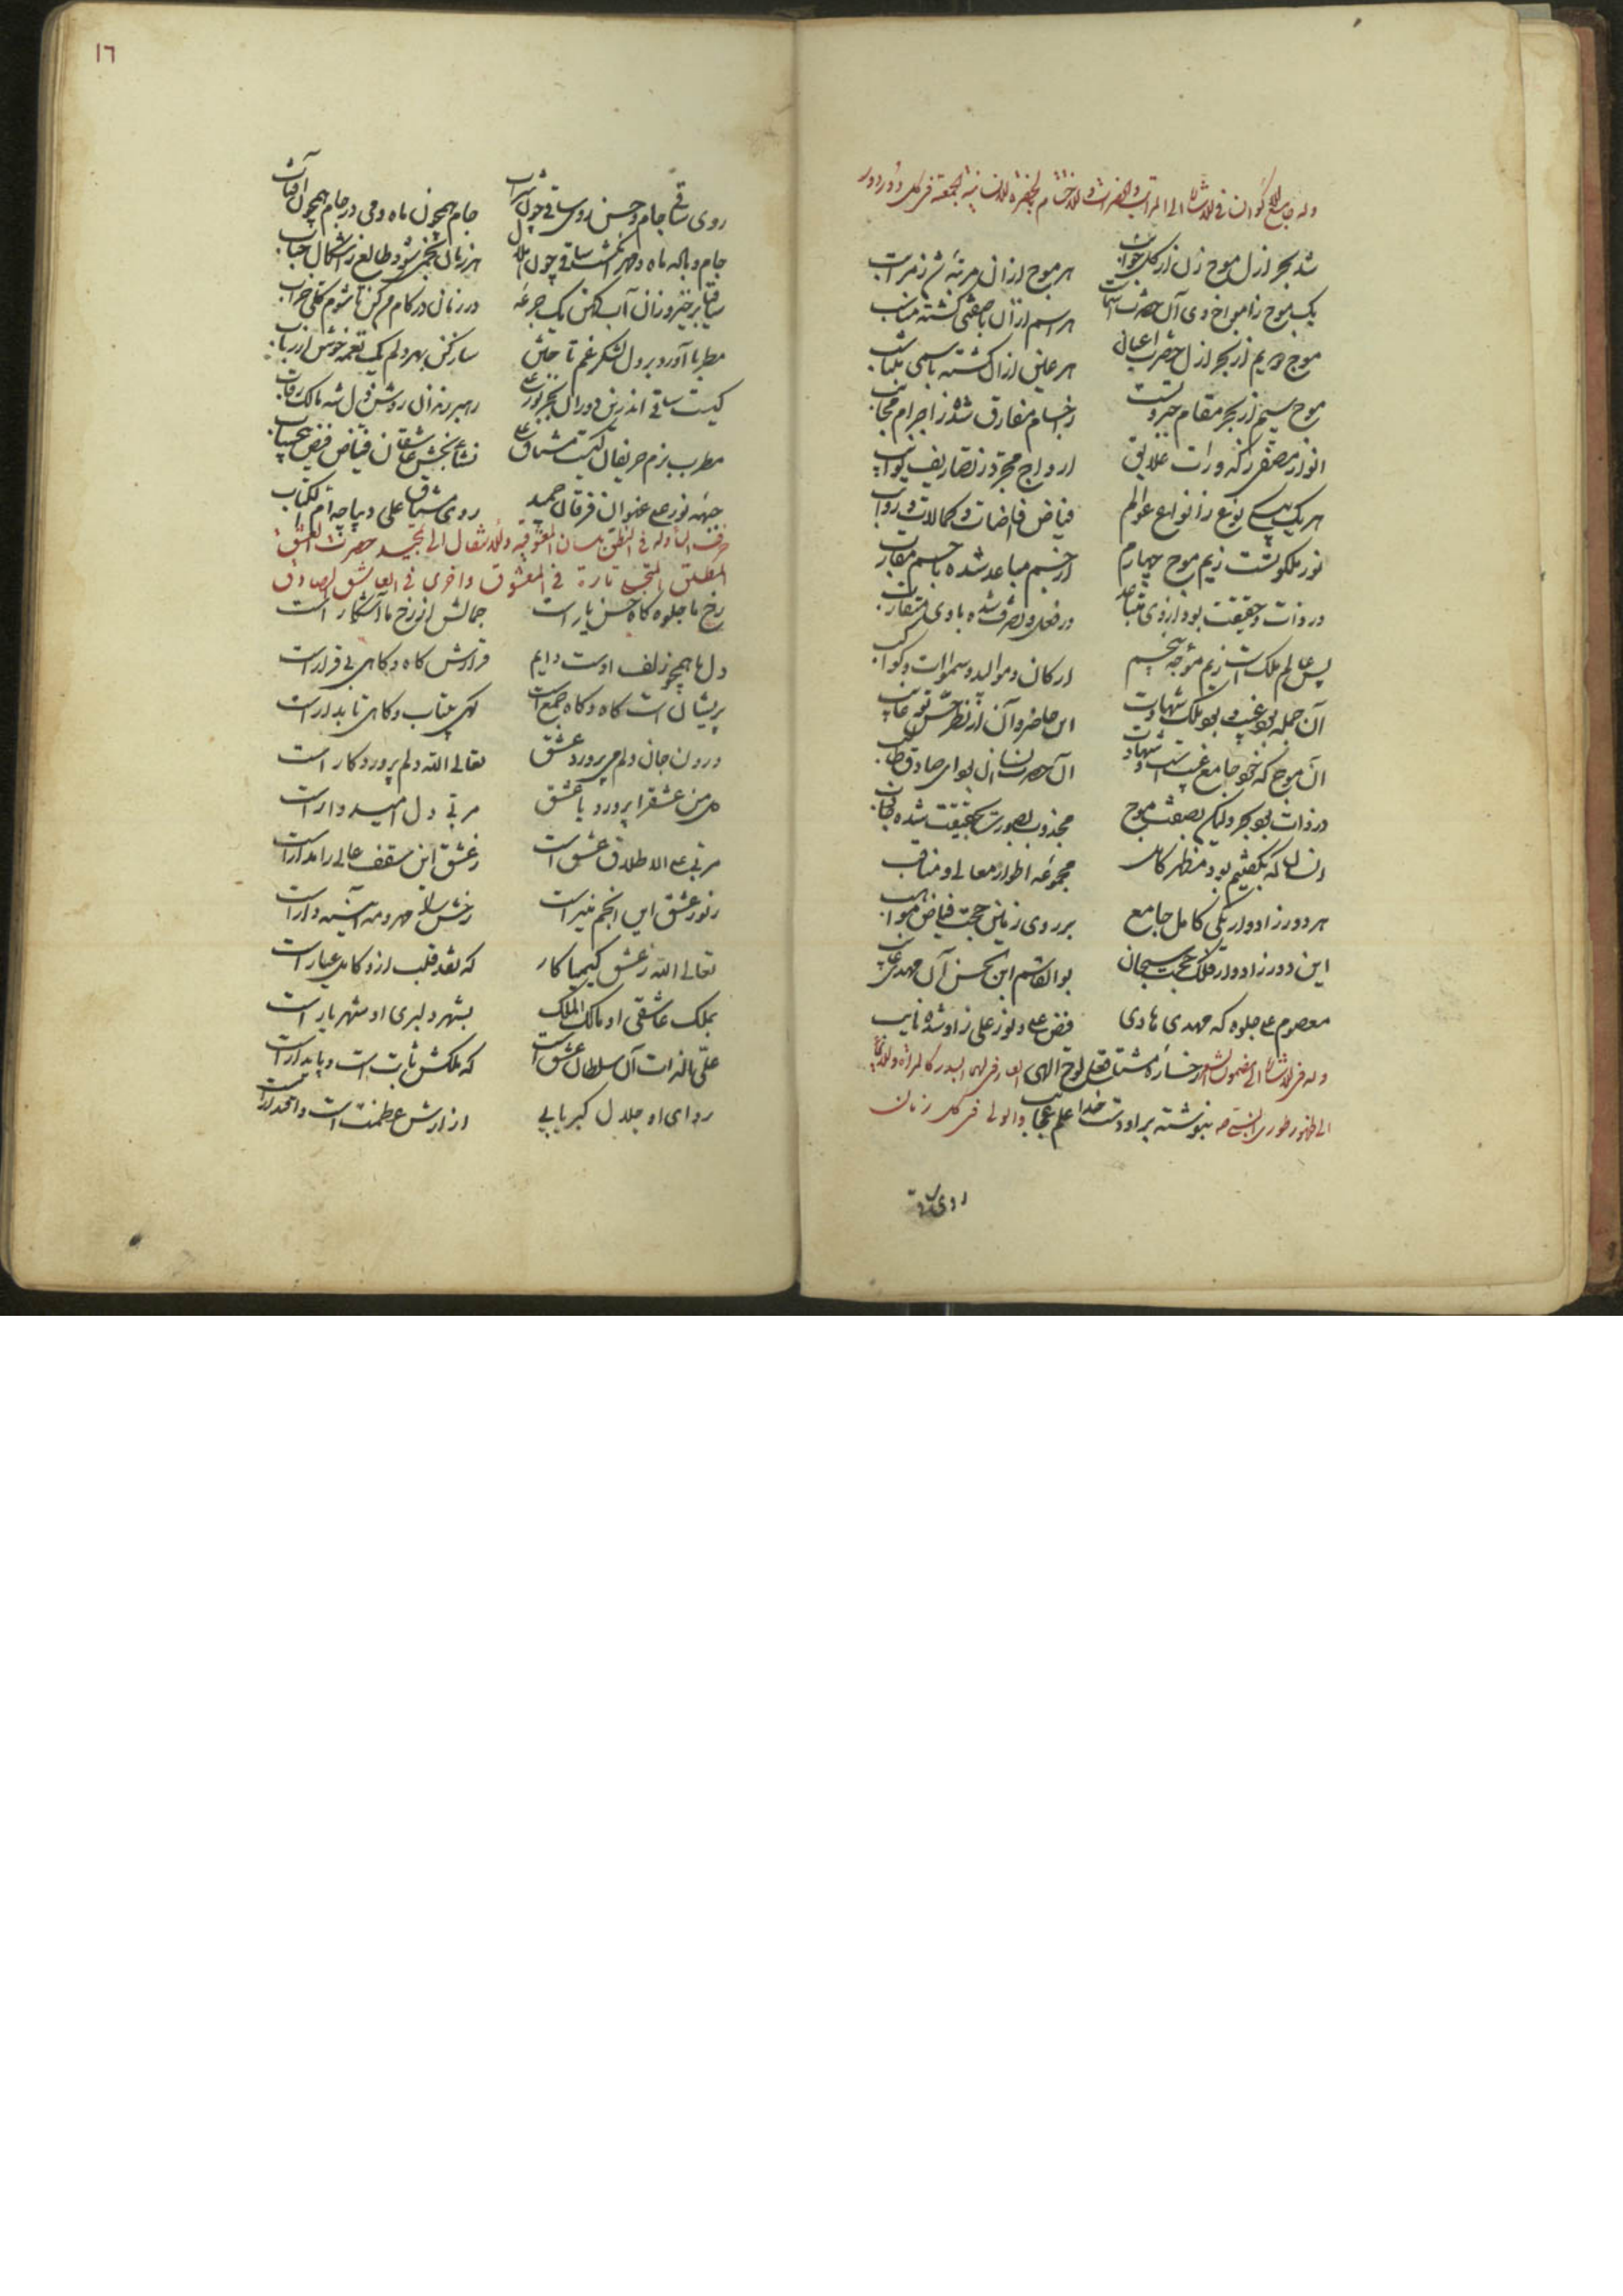 وله جامع الاکوان فی الاشارة الی المراتب والحضرات والاختتام بالحضرة الانسانیة الجمعیة فی کل دور ودور
شد بحر ازل موج زن از کل جوانب هر موج ازان مرتبهٔ شد ز مراتب
یک موج ز امواج وی آن حضرت اسماست هر اسم ازان با صفتی گشته مناسب
موج دویم از بحر ازل حضرت اعیان هر عین ازان گشته باسمی متناسب
موج سیم از بحر مقام جبروتست ز اجسام مفارق شده ز اجرام مجانب
انوار مصفی ز کدورات علایق ارواح مجرد ز تصاریف نوایب
هر یک بیکی نوع ز انواع عوالم فیاض فاضات و کمالات و رواتب
نور ملکوتست زیم موج چهارم از جسم مباعد شده با جسم مقارب
در ذات و حقیقت بود از وی متباعد در فعل و تصرف شده با وی متقارب
پس عالم ملک است زیم موجهٔ پنجم ارکان و موالید و سموات و کواکب
آن جمله بود غیب و بود ملک شهادت این حاضر و آن از نظر حس تو غایب
آن موج که خود جامع غیب است و شهادت آن حضرت انسان بود ای صادق طالب
در ذات بود بحر ولیکن بصفت موج مجذوب بصورت بحقیقت شده جاذب
انسان که بگفتیم بود مظهر کامل مجموعهٔ اطوار معالی و مناقب
هر دور ز ادوار یکی کامل جامع بر روی زمین حجت فیاض مواهب
این دور ز ادوار فلک حجت سبحان بوالقاسم ابن الحسن آن مهدی غایب
معصوم علی جلوه که مهدی هادی فیض علی و نور علی زاو شده نایب
وله فی الاشارة الی مضمون الشعر رخسارهٔ مشتاق علی لوح الهی
الی ظهور طوری بنوشته بر او دست خدا علم عجایب والولی فی کل زمان
روی ساقی
١٦
روی ساقی جام و حسن روی ساقی چون شراب جام همچون ماه و می در جام همچون آفتاب
جام و هاله ماه و مهر انگشت ساقی چون هلال هر زمان نجمی شود طالع ز اشکال حباب
ساقیا برخیز و زان آب کهن یک جرعهٔ در زمان در کام من کن تا شوم کلی خراب
مطربا آورد بر دل لشکر غم تاختن ساز کن بهر دلم یک نغمهٔ خوش از رباب
کیست ساقی اندرین دوران بجز نور علی رهبر رندان روشن دل شه مالک رقاب
مطرب بزم حریفان کیست مشتاق علی نشأه بخش عاشقان فیاض فیض بیحساب
جبههٔ نور علی عنوان فرقان حمید روی مشتاق علی دیباچهٔ ام الکتاب
حرف التاء وله فی النطق بلسان المعشوقیة والانتقال الی تمجید حضرت العشق
المطلق المتجلی تارة فی المعشوق واخری فی العاشق الصادق
رخ ما جلوه گاه حسن یار است جمالش از رخ ما آشکار است
دل ما همچو زلف اوست دایم قرارش گاه و گاهی بی قرار است
پریشان است گاه و گاه جمع است گهی بیتاب و گاهی تابدار است
درون جان و دلم می پرورد عشق تعالی الله دلم پروردگار است
دل من عشق را پرورد یا عشق مربی دل امیدوار است
مربی علی الاطلاق عشق است ز عشق این سقف عالی را مدار است
ز نور عشق این انجم منیر است رخش را مهر و مه آیینه دار است
تعالی الله ز عشق کیمیا کار که نقد قلب ازو کامل عیار است
بملک عاشقی او مالک الملک بشهر دلبری او شهریار است
علی بالذات آن سلطان عشق است که ملکش ثابت است و پایدار است
ردای او جلال کبریایی ازارش عظمت است و اقتدار است